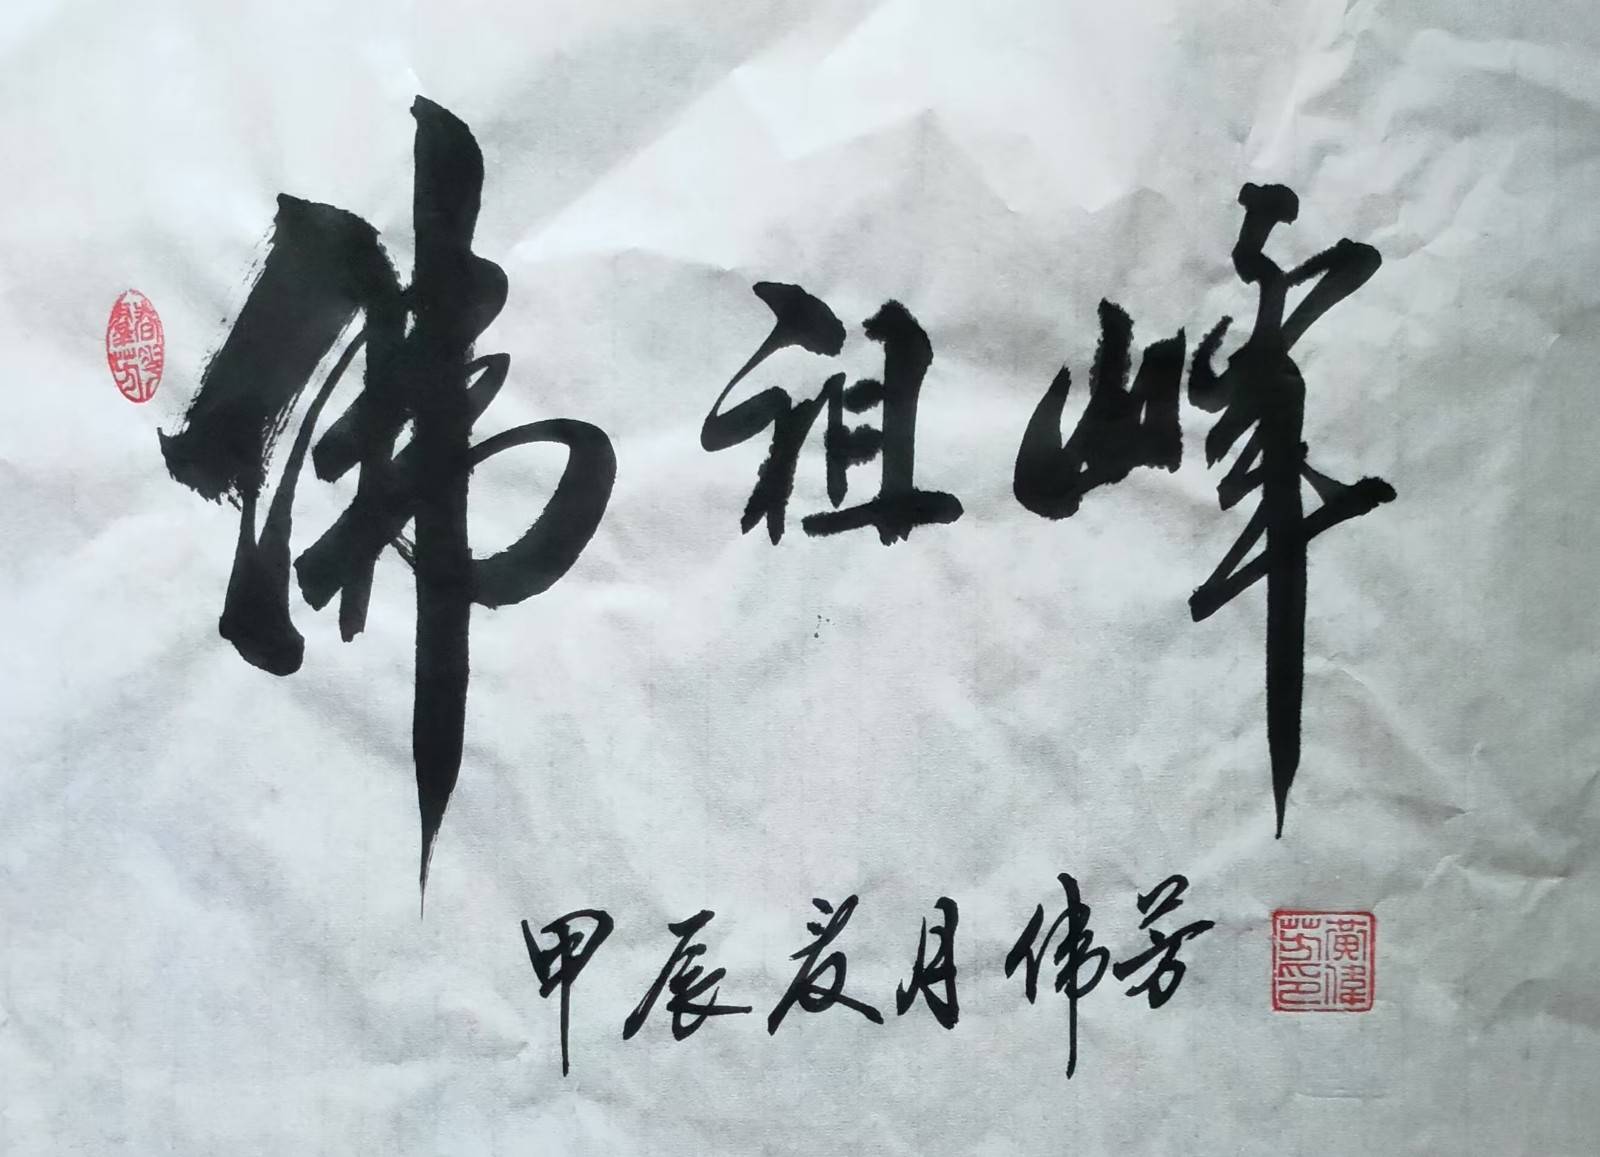 佛祖峰
甲辰夏月伟芳
黄伟芳印